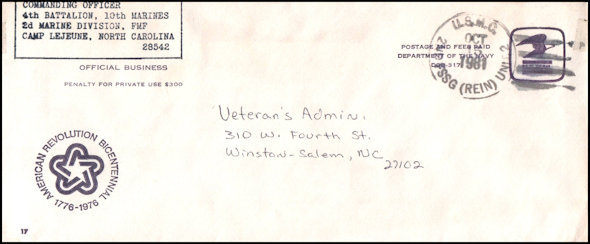 COMMANDING OFFICER
4th BATTALION, 10th MARINES
2d MARINE DIVISION, FMF
CAMP LEJEUNE, NORTH CAROLINA
28542
OFFICIAL BUSINESS
PENALTY FOR PRIVATE USE $300
U.S.M.C.
OCT
1981
2ND FSSG (REIN) UNIT 2
POSTAGE AND FEES PAID
DEPARTMENT OF THE NAVY
DOD-317
Veteran's Admin.
310 W. Fourth St.
Winston-Salem, NC
27102
AMERICAN REVOLUTION BICENTENNIAL
1776-1976
17